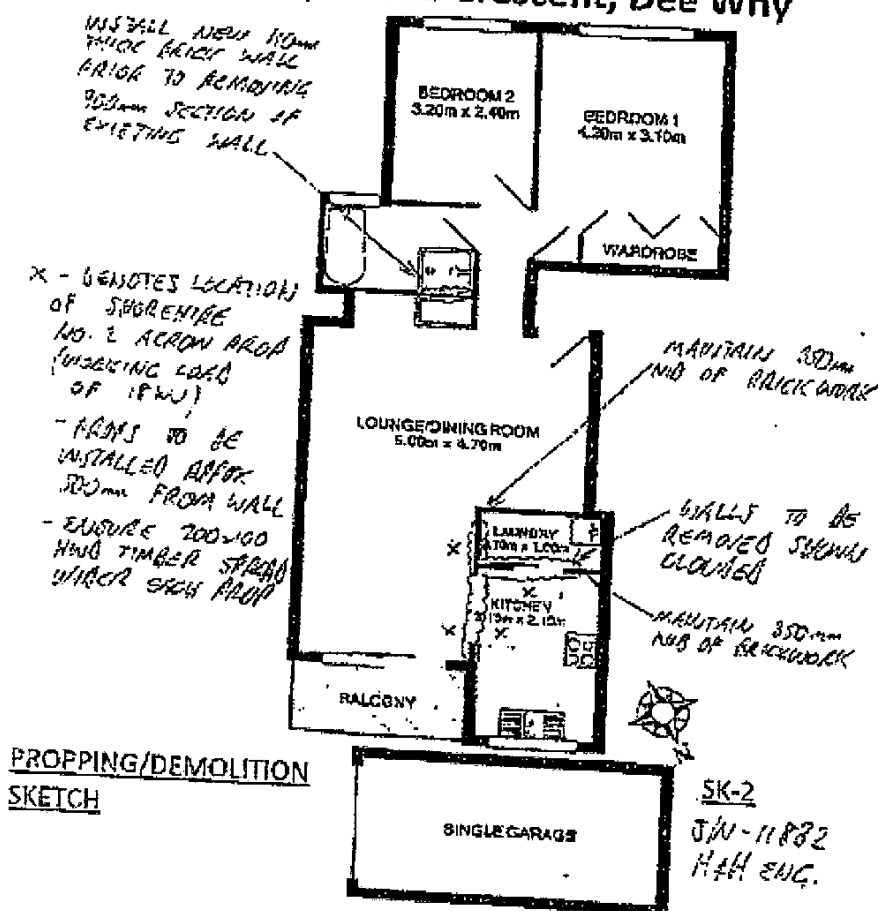 Crescent, Dee Why
INSTALL NEW 110mm
THICK BRICK WALL
PRIOR TO REMOVING
900mm SECTION OF
EXISTING WALL
BEDROOM 2
3.20m x 2.40m
BEDROOM 1
4.20m x 3.10m
WARDROBE
X - DENOTES LOCATION
OF SHOREHIRE
NO. 2 ACROW PROP
(WORKING LOAD
OF 18kN)
- PROPS TO BE
INSTALLED APPROX
500mm FROM WALL
- ENSURE 200x100
HWD TIMBER SPREAD
UNDER EACH PROP
MAINTAIN 350mm
NIB OF BRICKWORK
LOUNGE/DINING ROOM
5.00m x 4.70m
LAUNDRY
WALLS TO BE
REMOVED SHOWN
CLOUDED
KITCHEN
MAINTAIN 350mm
NIB OF BRICKWORK
BALCONY
PROPPING/DEMOLITION
SKETCH
SINGLE GARAGE
SK-2
J/N-11832
H&H ENG.